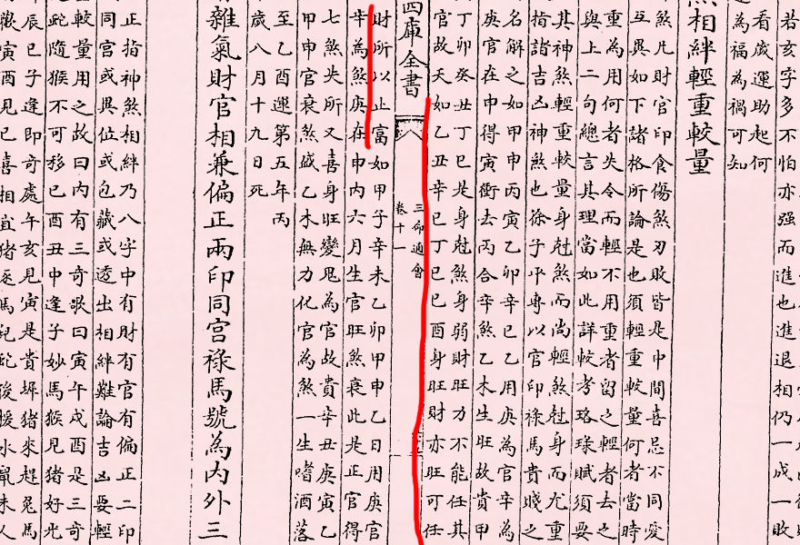 若亥字多不怕亦强而進也進退相仍一成一敗
看歲運助起何
為福為禍可知
煞相絆輕重較量
煞凡財官印食傷煞刃敗皆是中間喜忌不同愛
互異如下諸格所論是也須輕重較量何者當時
重為用何者失令而輕不用重者留之輕者去之
與上二句總言其理當如此詳較考珞琭賦須要
其神煞輕重較量身尅煞而尚輕煞尅身而尤重
指諸吉凶神煞也徐子平專以官印祿馬貴賤之
名解之如甲申丙寅乙卯辛巳乙用庚為官辛為
庚官在申得寅衝去丙合辛煞乙木生旺故貴甲
丁卯癸丑丁巳是身尅煞身弱財旺力不能任其
官故夭如乙丑辛巳丁巳己酉身旺財亦旺可任
四庫全書
三命通會
卷十一
財所以止富如甲子辛未乙卯甲申乙日用庚官
辛為煞庚在申内六月生官旺煞衰此是正官得
七煞失所又喜身旺變鬼為官故貴辛丑庚寅乙
甲申官衰煞盛乙木無力化官為煞一生嗜酒落
至乙酉運第五年丙
歲八月十九日死
雜氣財官相兼偏正兩印同宮祿馬號為内外三
正指神煞相絆乃八字中有財有官有偏正二印
同宮或異位或包藏或透出相絆難論吉凶要輕
較量用之故曰内有三奇歌曰寅午戌酉是三奇
蛇隨猴不可移巳酉丑中逢子妙馬猴見猪好光
辰巳子逢即奇處午亥見寅是貴墀猪來趕兔馬
歡寅酉見巳喜相宜猪逐馬兒蛇後援水鼠未人